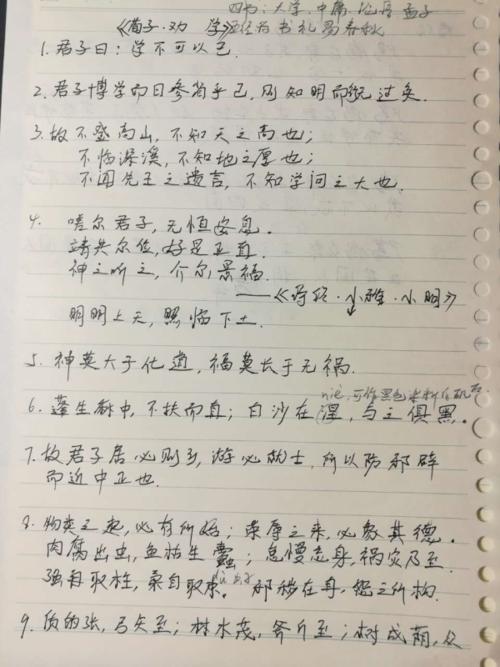 四书：大学 中庸 论语 孟子
《荀子·劝学》五经：诗 书 礼 易 春秋
1. 君子曰：学不可以已.
2. 君子博学而日参省乎己，则知明而行无过矣.
3. 故不登高山，不知天之高也；
不临深溪，不知地之厚也；
不闻先王之遗言，不知学问之大也.
4. 嗟尔君子，无恒安息.
靖共尔位，好是正直.
神之听之，介尔景福.
——《诗经·小雅·小明》
明明上天，照临下土.
5. 神莫大于化道，福莫长于无祸.
nie，可作黑色染料的矾石
6. 蓬生麻中，不扶而直；白沙在涅，与之俱黑.
7. 故君子居必择乡，游必就士，所以防邪辟
而近中正也.
8. 物类之起，必有所始；荣辱之来，必象其德.
肉腐出虫，鱼枯生蠹；怠慢忘身，祸灾乃至.
强自取柱，柔自取束. 邪秽在身，怨之所构.
9. 质的张，弓矢至；林木茂，斧斤至；树成荫，众